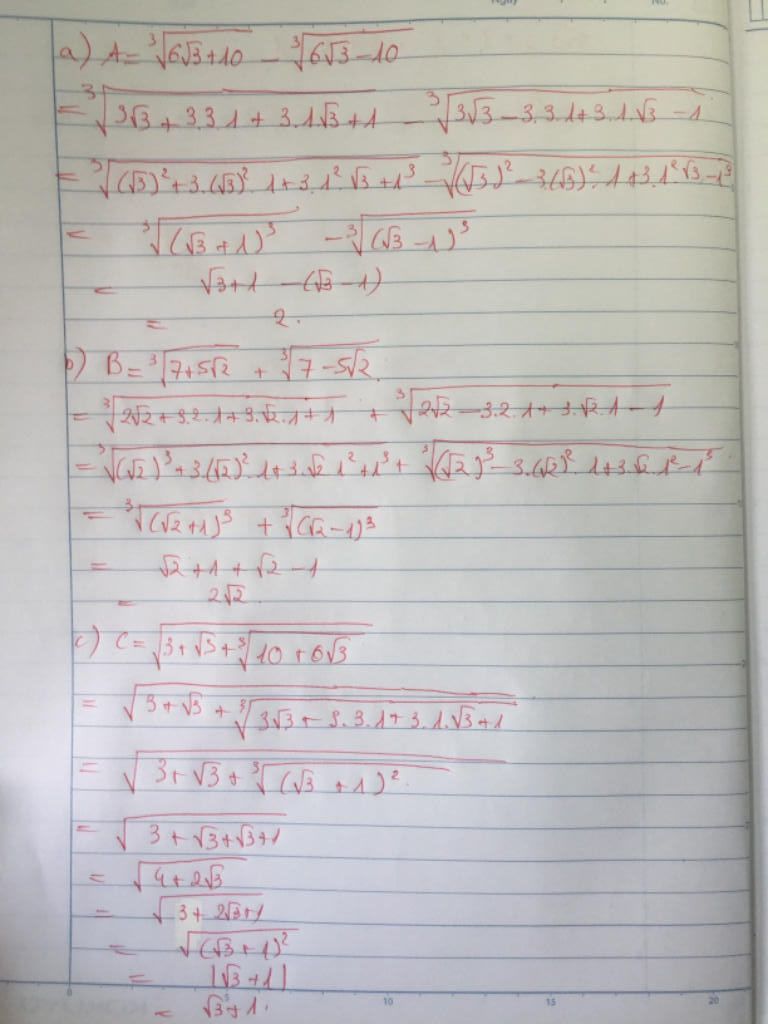 a) A = ∛(6√3+10) − ∛(6√3−10)
= ∛(3√3 + 3.3.1 + 3.1√3 + 1) − ∛(3√3 − 3.3.1 + 3.1.√3 − 1)
= ∛((√3)² + 3.(√3)².1 + 3.1².√3 + 1³) − ∛((√3)² − 3.(√3)².1 + 3.1².√3 − 1³)
= ∛((√3+1)³) − ∛((√3−1)³)
= √3+1 − (√3−1)
= 2.
b) B = ∛(7+5√2) + ∛(7−5√2)
= ∛(2√2 + 3.2.1 + 3.√2.1 + 1) + ∛(2√2 − 3.2.1 + 3.√2.1 − 1)
= ∛((√2)³ + 3(√2)².1 + 3.√2.1² + 1³) + ∛((√2)³ − 3.(√2)².1 + 3√2.1² − 1³)
= ∛((√2+1)³) + ∛((√2−1)³)
= √2 + 1 + √2 − 1
= 2√2.
c) C = √(3 + √3 + ∛(10 + 6√3))
= √(3 + √3 + ∛(3√3 + 3.3.1 + 3.1.√3 + 1))
= √(3 + √3 + ∛((√3 + 1)²))
= √(3 + √3 + √3 + 1)
= √(4 + 2√3)
= √(3 + 2√3 + 1)
= √((√3 + 1)²)
= |√3 + 1|
= √3 + 1.
0 5 10 15 20